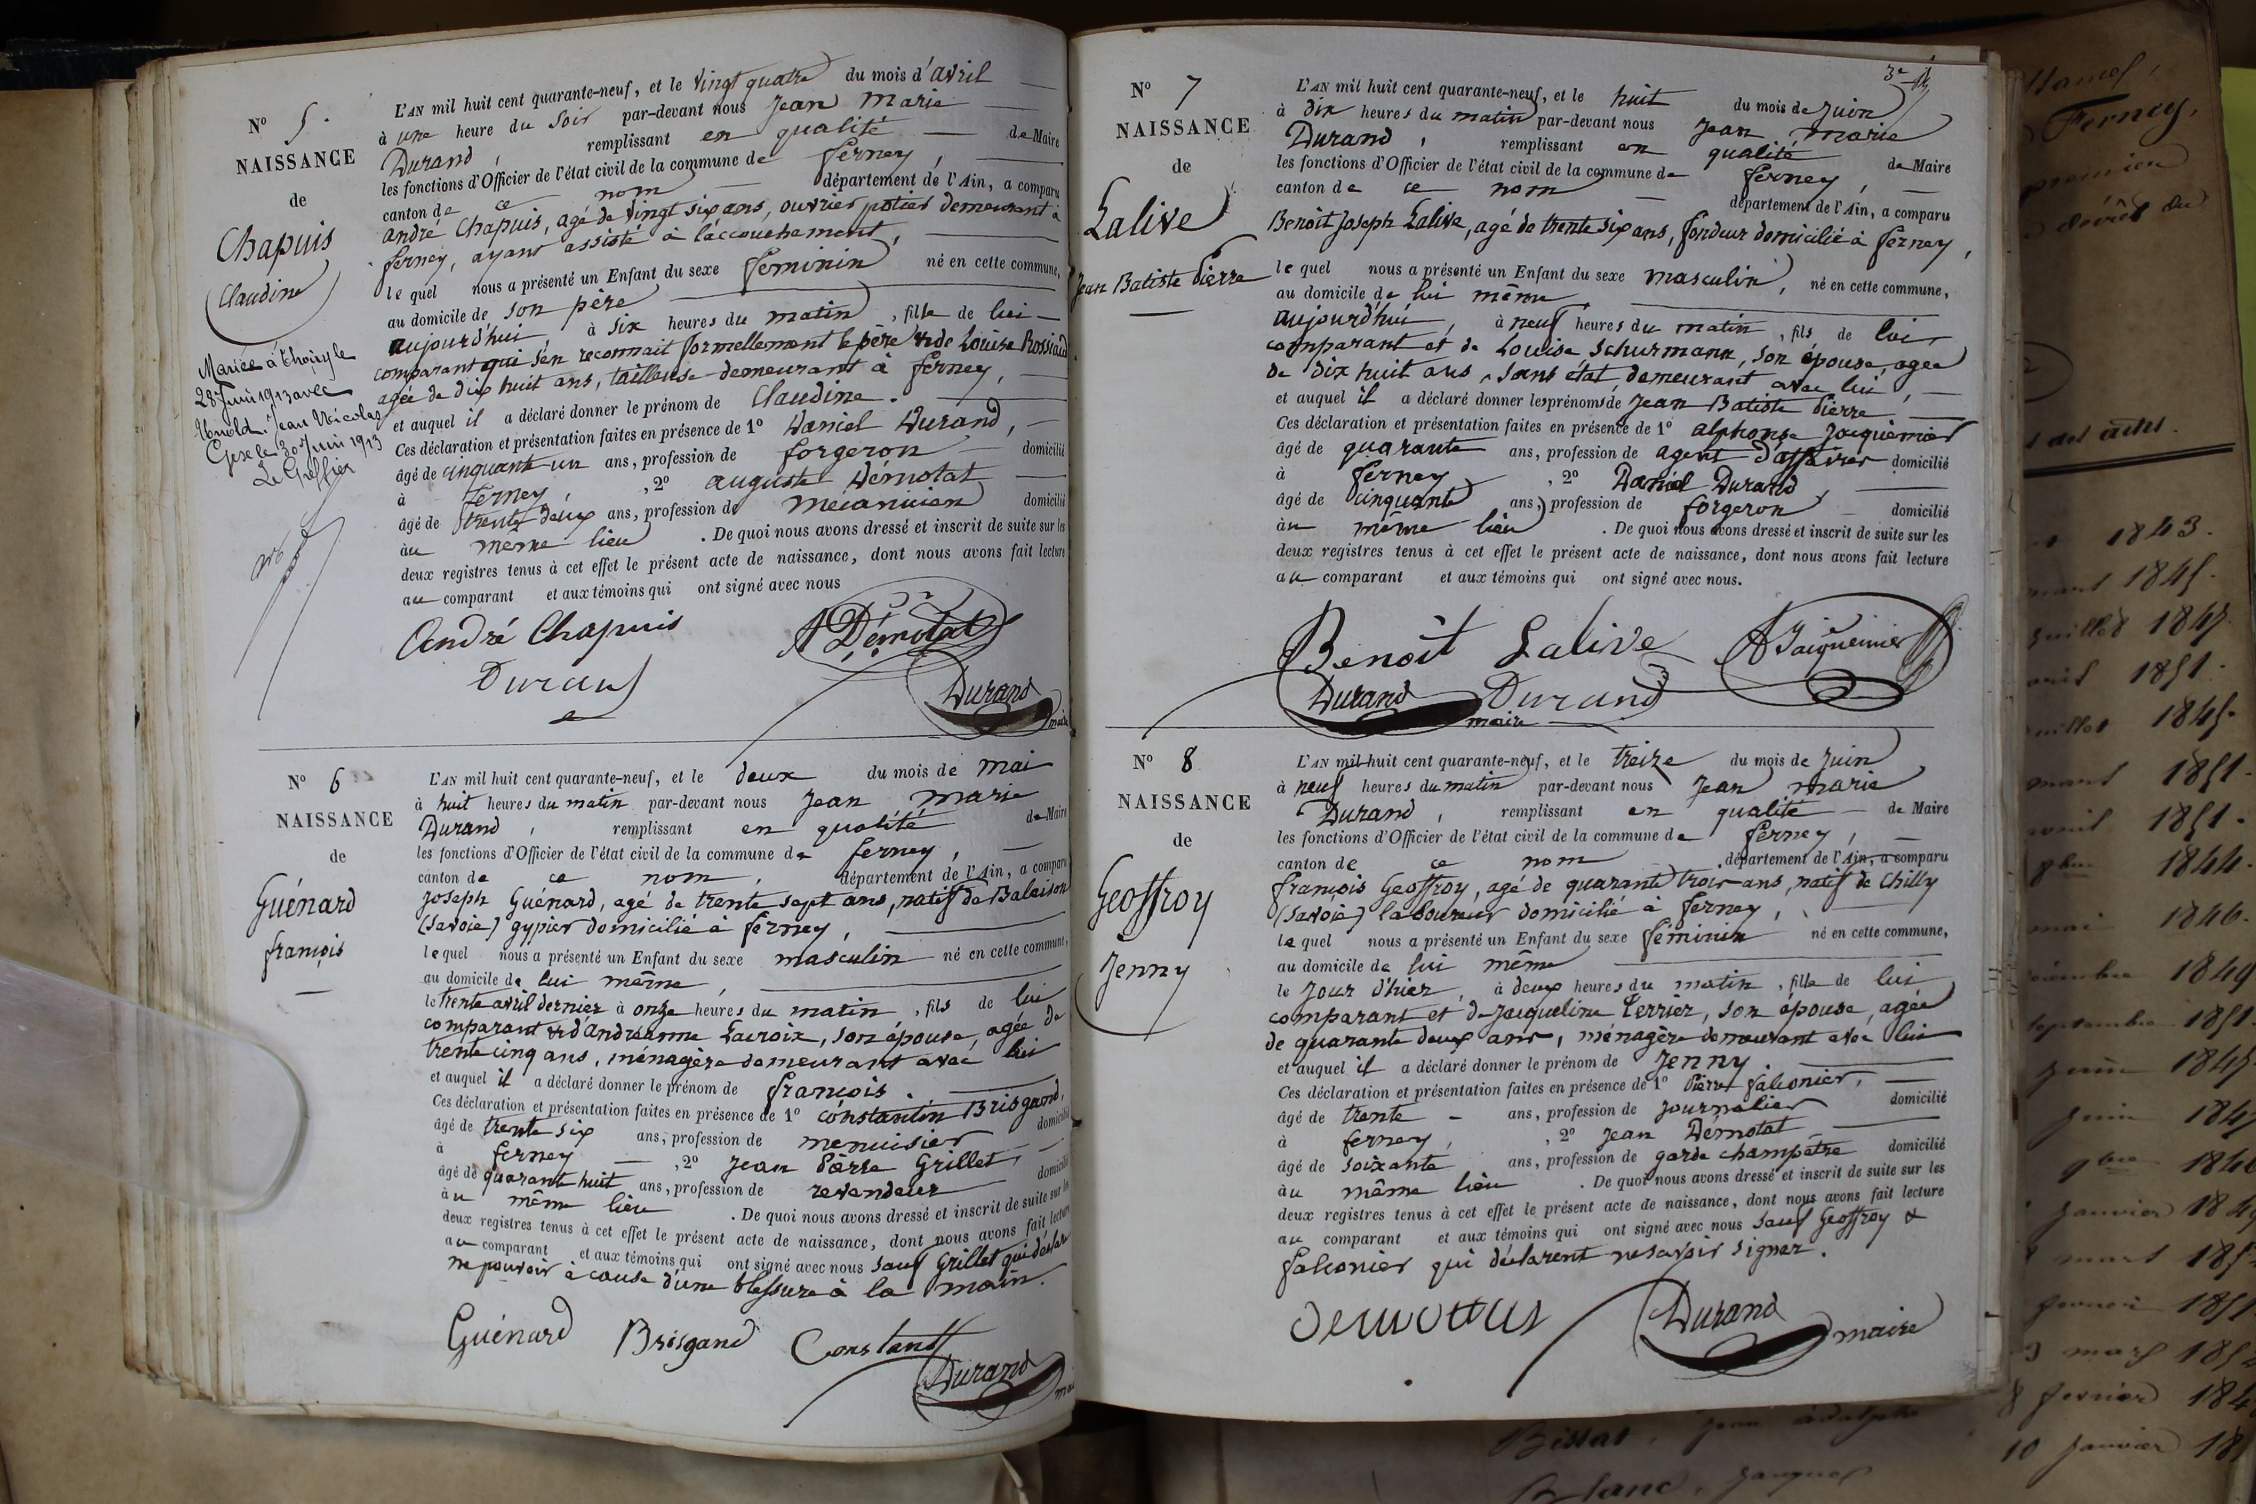 N° 5.
NAISSANCE
de
Chapuis
Claudine
Mariée à Thoiry le
28 Juin 1913 avec
Jean Nicolas
Gex le 30 Juin 1913
Le Greffier
L'AN mil huit cent quarante-neuf, et le vingt quatre du mois d'avril
à une heure du soir par-devant nous Jean Marie
Durand, remplissant en qualité de Maire
les fonctions d'Officier de l'état civil de la commune de ferney,
canton de ce nom département de l'Ain, a comparu
andré Chapuis, agé de vingt six ans, ouvrier potier demeurant à
ferney, ayant assisté à l'accouchement,
lequel nous a présenté un Enfant du sexe feminin né en cette commune,
au domicile de son père
aujourd'hui, à six heures du matin, fille de lui
comparant qui s'en reconnait formellement le père et de Louise Rossiaud
agée de dix huit ans, tailleuse demeurant à ferney,
et auquel il a déclaré donner le prénom de Claudine.
Ces déclaration et présentation faites en présence de 1° Daniel Durand,
âgé de cinquante un ans, profession de forgeron domicilié
à ferney, , 2° auguste Démotat
âgé de trente deux ans, profession de mécanicien domicilié
au même lieu . De quoi nous avons dressé et inscrit de suite sur les
deux registres tenus à cet effet le présent acte de naissance, dont nous avons fait lecture
au comparant et aux témoins qui ont signé avec nous
André Chapuis A Démotat
Durand Durand
maire
N° 6
NAISSANCE
de
Guénard
françois
L'AN mil huit cent quarante-neuf, et le deux du mois de mai
à huit heures du matin par-devant nous Jean Marie
Durand, remplissant en qualité de Maire
les fonctions d'Officier de l'état civil de la commune de ferney,
canton de ce nom, département de l'Ain, a comparu
Joseph Guénard, agé de trente sept ans, natif de Balaison
(Savoie) gypier domicilié à ferney,
lequel nous a présenté un Enfant du sexe masculin né en cette commune,
au domicile de lui même,
le trente avril dernier à onze heures du matin, fils de lui
comparant et d'andréanne Lacroix, son épouse, agée de
trente cinq ans, ménagère demeurant avec lui
et auquel il a déclaré donner le prénom de françois.
Ces déclaration et présentation faites en présence de 1° constantin Brisgand,
âgé de trente six ans, profession de menuisier domicilié
à ferney , 2° Jean Pierre Grillet,
âgé de quarante huit ans, profession de revendeur domicilié
au même lieu . De quoi nous avons dressé et inscrit de suite sur les
deux registres tenus à cet effet le présent acte de naissance, dont nous avons fait lecture
au comparant et aux témoins qui ont signé avec nous sauf Grillet qui déclare
ne pouvoir à cause d'une blessure à la main.
Guénard Brisgand Constant
Durand
N° 7
NAISSANCE
de
Lalive
Jean Batiste Pierre
3e
L'AN mil huit cent quarante-neuf, et le huit du mois de Juin
à dix heures du matin par-devant nous Jean Marie
Durand, remplissant en qualité de Maire
les fonctions d'Officier de l'état civil de la commune de ferney,
canton de ce nom département de l'Ain, a comparu
Benoît Joseph Lalive, agé de trente six ans, fondeur domicilié à ferney,
lequel nous a présenté un Enfant du sexe masculin, né en cette commune,
au domicile de lui même
aujourd'hui à neuf heures du matin, fils de lui
comparant et de Louise Schurmann, son épouse, agée
de dix huit ans, sans état, demeurant avec lui,
et auquel il a déclaré donner les prénoms de Jean Batiste Pierre
Ces déclaration et présentation faites en présence de 1° alphonse Jacquemier
âgé de quarante ans, profession de agent d'affaires domicilié
à ferney , 2° Daniel Durand,
âgé de cinquante ans, profession de forgeron domicilié
au même lieu . De quoi nous avons dressé et inscrit de suite sur les
deux registres tenus à cet effet le présent acte de naissance, dont nous avons fait lecture
au comparant et aux témoins qui ont signé avec nous.
Benoît Lalive A Jacquemier
Durand Durand
maire
N° 8
NAISSANCE
de
Geoffroy
Jenny
L'AN mil huit cent quarante-neuf, et le treize du mois de Juin
à neuf heures du matin par-devant nous Jean Marie
Durand, remplissant en qualité de Maire
les fonctions d'Officier de l'état civil de la commune de ferney,
canton de ce nom département de l'Ain, a comparu
françois Geoffroy, agé de quarante trois ans, natif de Chilly
(Savoie) laboureur domicilié à ferney,
lequel nous a présenté un Enfant du sexe féminin né en cette commune,
au domicile de lui même
le jour d'hier, à deux heures du matin, fille de lui
comparant et de Jacqueline Perrier, son épouse, agée
de quarante deux ans, ménagère demeurant avec lui
et auquel il a déclaré donner le prénom de Jenny.
Ces déclaration et présentation faites en présence de 1° Pierre falconier,
âgé de trente ans, profession de journalier domicilié
à ferney, , 2° Jean Démotat
âgé de soixante ans, profession de garde champêtre domicilié
au même lieu . De quoi nous avons dressé et inscrit de suite sur les
deux registres tenus à cet effet le présent acte de naissance, dont nous avons fait lecture
au comparant et aux témoins qui ont signé avec nous sauf Geoffroy &
falconier qui déclarent ne savoir signer.
Durand
maire
Ferney,
premier
des actes.
1843.
mars 1845.
juillet 1847.
1851.
1845.
mars 1851.
avril 1851.
9bre 1844.
mai 1846.
1849
septembre 1851.
juin 1845
juin 1847
9bre 184
janvier 184
mars 185
185
mars 185
8 fevrier 184
10 janvier 18
Jean adolphe
Blanc, Jacques